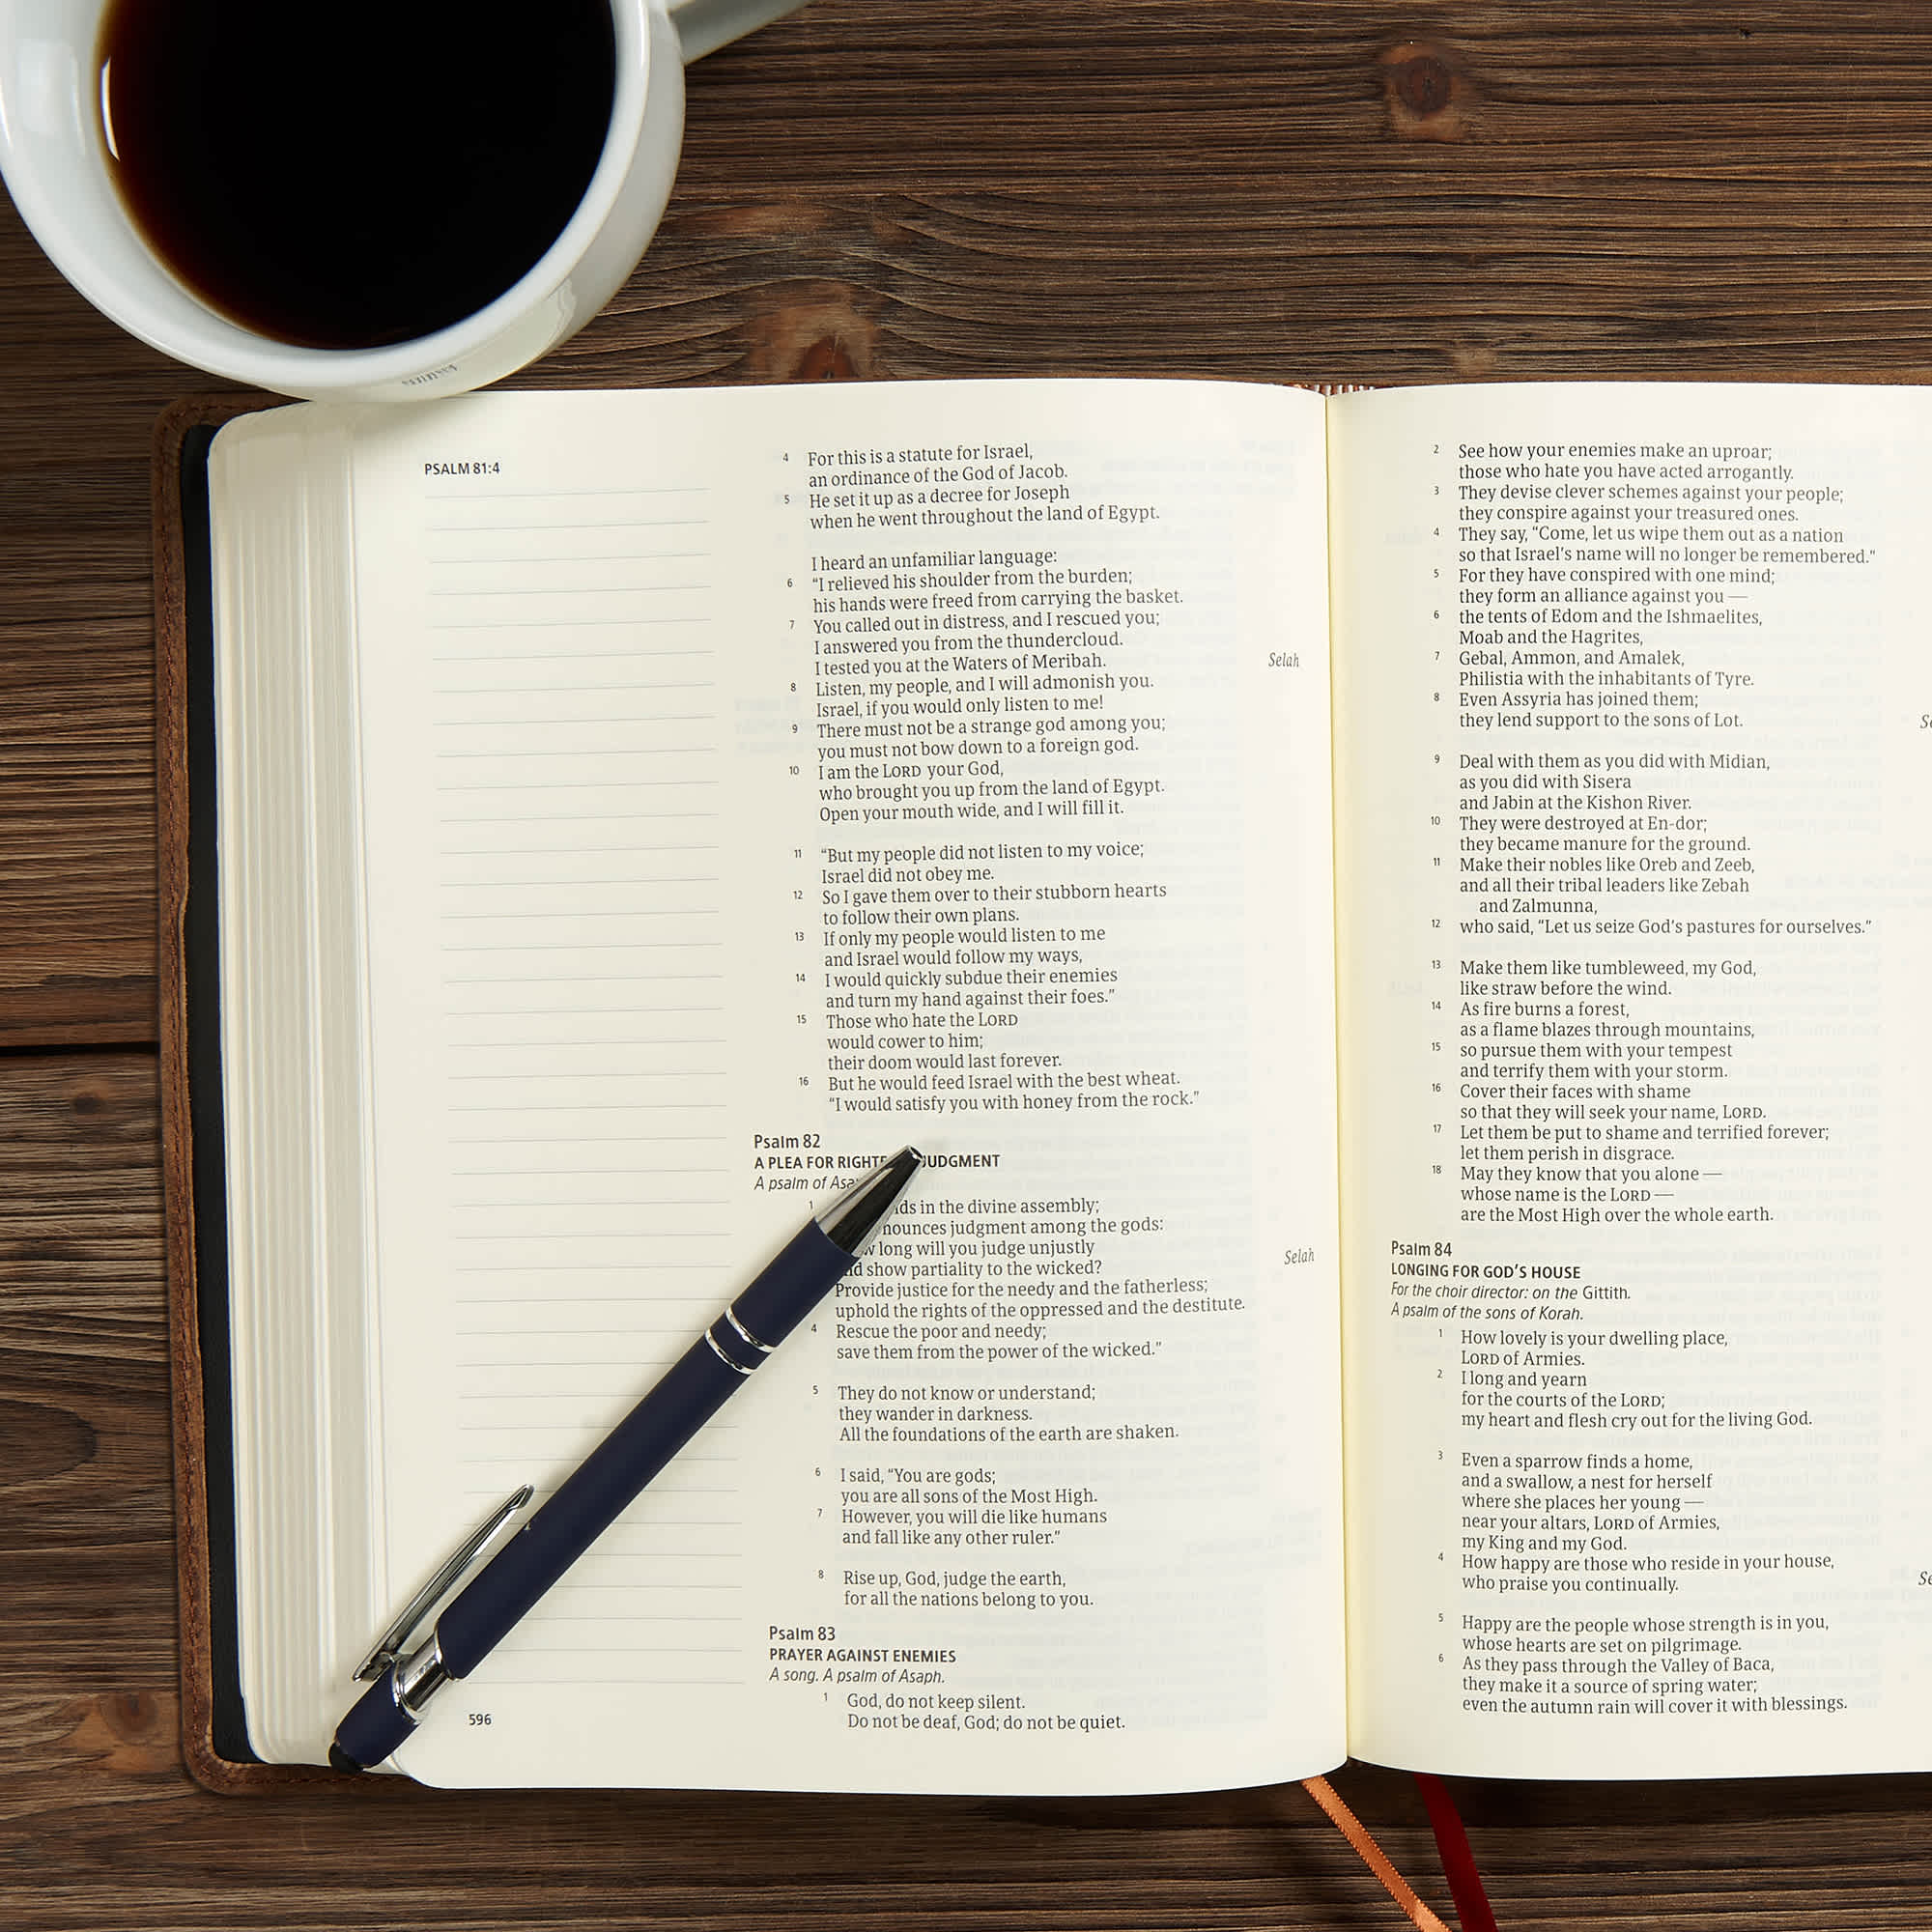 PSALM 81:4
4 For this is a statute for Israel,
an ordinance of the God of Jacob.
5 He set it up as a decree for Joseph
when he went throughout the land of Egypt.
I heard an unfamiliar language:
6 “I relieved his shoulder from the burden;
his hands were freed from carrying the basket.
7 You called out in distress, and I rescued you;
I answered you from the thundercloud.
I tested you at the Waters of Meribah. Selah
8 Listen, my people, and I will admonish you.
Israel, if you would only listen to me!
9 There must not be a strange god among you;
you must not bow down to a foreign god.
10 I am the LORD your God,
who brought you up from the land of Egypt.
Open your mouth wide, and I will fill it.
11 “But my people did not listen to my voice;
Israel did not obey me.
12 So I gave them over to their stubborn hearts
to follow their own plans.
13 If only my people would listen to me
and Israel would follow my ways,
14 I would quickly subdue their enemies
and turn my hand against their foes.”
15 Those who hate the LORD
would cower to him;
their doom would last forever.
16 But he would feed Israel with the best wheat.
“I would satisfy you with honey from the rock.”
Psalm 82
A PLEA FOR JUDGMENT
A psalm of
1 in the divine assembly;
judgment among the gods:
long will you judge unjustly
show partiality to the wicked? Selah
Provide justice for the needy and the fatherless;
uphold the rights of the oppressed and the destitute.
4 Rescue the poor and needy;
save them from the power of the wicked.”
5 They do not know or understand;
they wander in darkness.
All the foundations of the earth are shaken.
6 I said, “You are gods;
you are all sons of the Most High.
7 However, you will die like humans
and fall like any other ruler.”
8 Rise up, God, judge the earth,
for all the nations belong to you.
Psalm 83
PRAYER AGAINST ENEMIES
A song. A psalm of Asaph.
1 God, do not keep silent.
Do not be deaf, God; do not be quiet.
596
2 See how your enemies make an uproar;
those who hate you have acted arrogantly.
3 They devise clever schemes against your people;
they conspire against your treasured ones.
4 They say, “Come, let us wipe them out as a nation
so that Israel’s name will no longer be remembered.”
5 For they have conspired with one mind;
they form an alliance against you —
6 the tents of Edom and the Ishmaelites,
Moab and the Hagrites,
7 Gebal, Ammon, and Amalek,
Philistia with the inhabitants of Tyre.
8 Even Assyria has joined them;
they lend support to the sons of Lot.
9 Deal with them as you did with Midian,
as you did with Sisera
and Jabin at the Kishon River.
10 They were destroyed at En-dor;
they became manure for the ground.
11 Make their nobles like Oreb and Zeeb,
and all their tribal leaders like Zebah
and Zalmunna,
12 who said, “Let us seize God’s pastures for ourselves.”
13 Make them like tumbleweed, my God,
like straw before the wind.
14 As fire burns a forest,
as a flame blazes through mountains,
15 so pursue them with your tempest
and terrify them with your storm.
16 Cover their faces with shame
so that they will seek your name, LORD.
17 Let them be put to shame and terrified forever;
let them perish in disgrace.
18 May they know that you alone —
whose name is the LORD —
are the Most High over the whole earth.
Psalm 84
LONGING FOR GOD’S HOUSE
For the choir director: on the Gittith.
A psalm of the sons of Korah.
1 How lovely is your dwelling place,
LORD of Armies.
2 I long and yearn
for the courts of the LORD;
my heart and flesh cry out for the living God.
3 Even a sparrow finds a home,
and a swallow, a nest for herself
where she places her young —
near your altars, LORD of Armies,
my King and my God.
4 How happy are those who reside in your house,
who praise you continually.
5 Happy are the people whose strength is in you,
whose hearts are set on pilgrimage.
6 As they pass through the Valley of Baca,
they make it a source of spring water;
even the autumn rain will cover it with blessings.